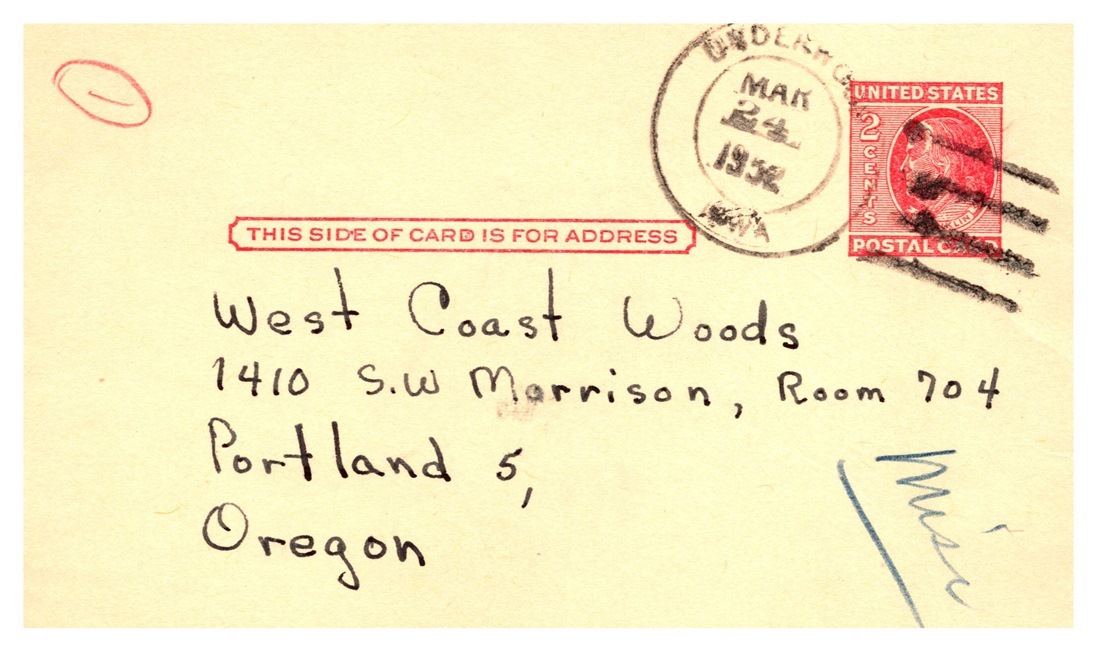 UNDERWOO
MAR
24
1952
IOWA
UNITED STATES
2 CENTS
POSTAL CARD
THIS SIDE OF CARD IS FOR ADDRESS
West Coast Woods
1410 S.W Morrison, Room 704
Portland 5,
Oregon
misc